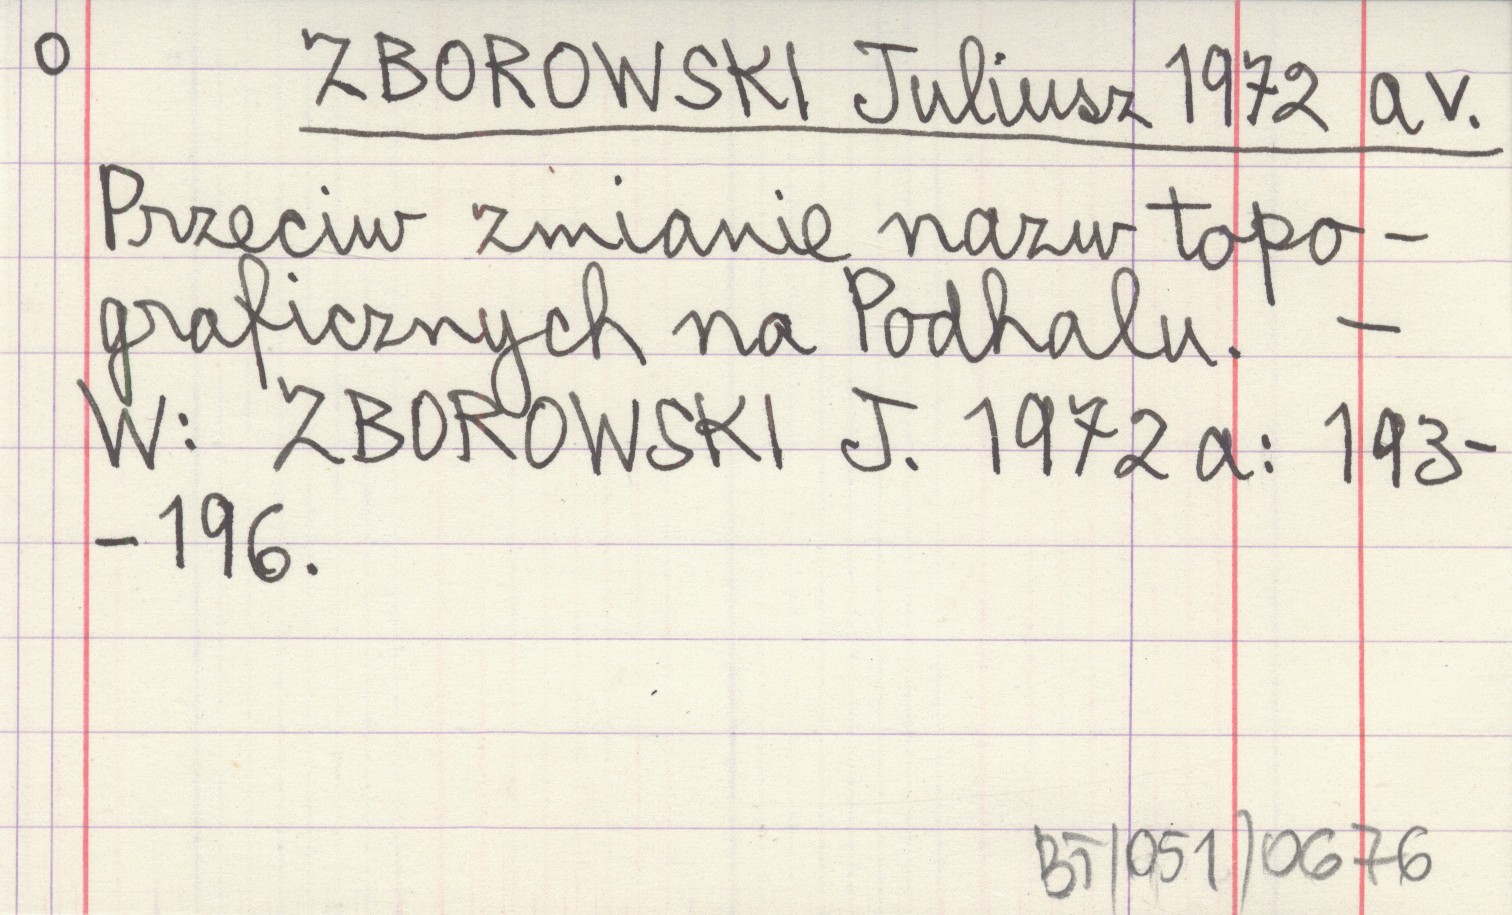 O ZBOROWSKI Juliusz 1972 a v.
Przeciw zmianie nazw topo-
graficznych na Podhalu. –
W: ZBOROWSKI J. 1972 a: 193-
-196.
BT/051/0676